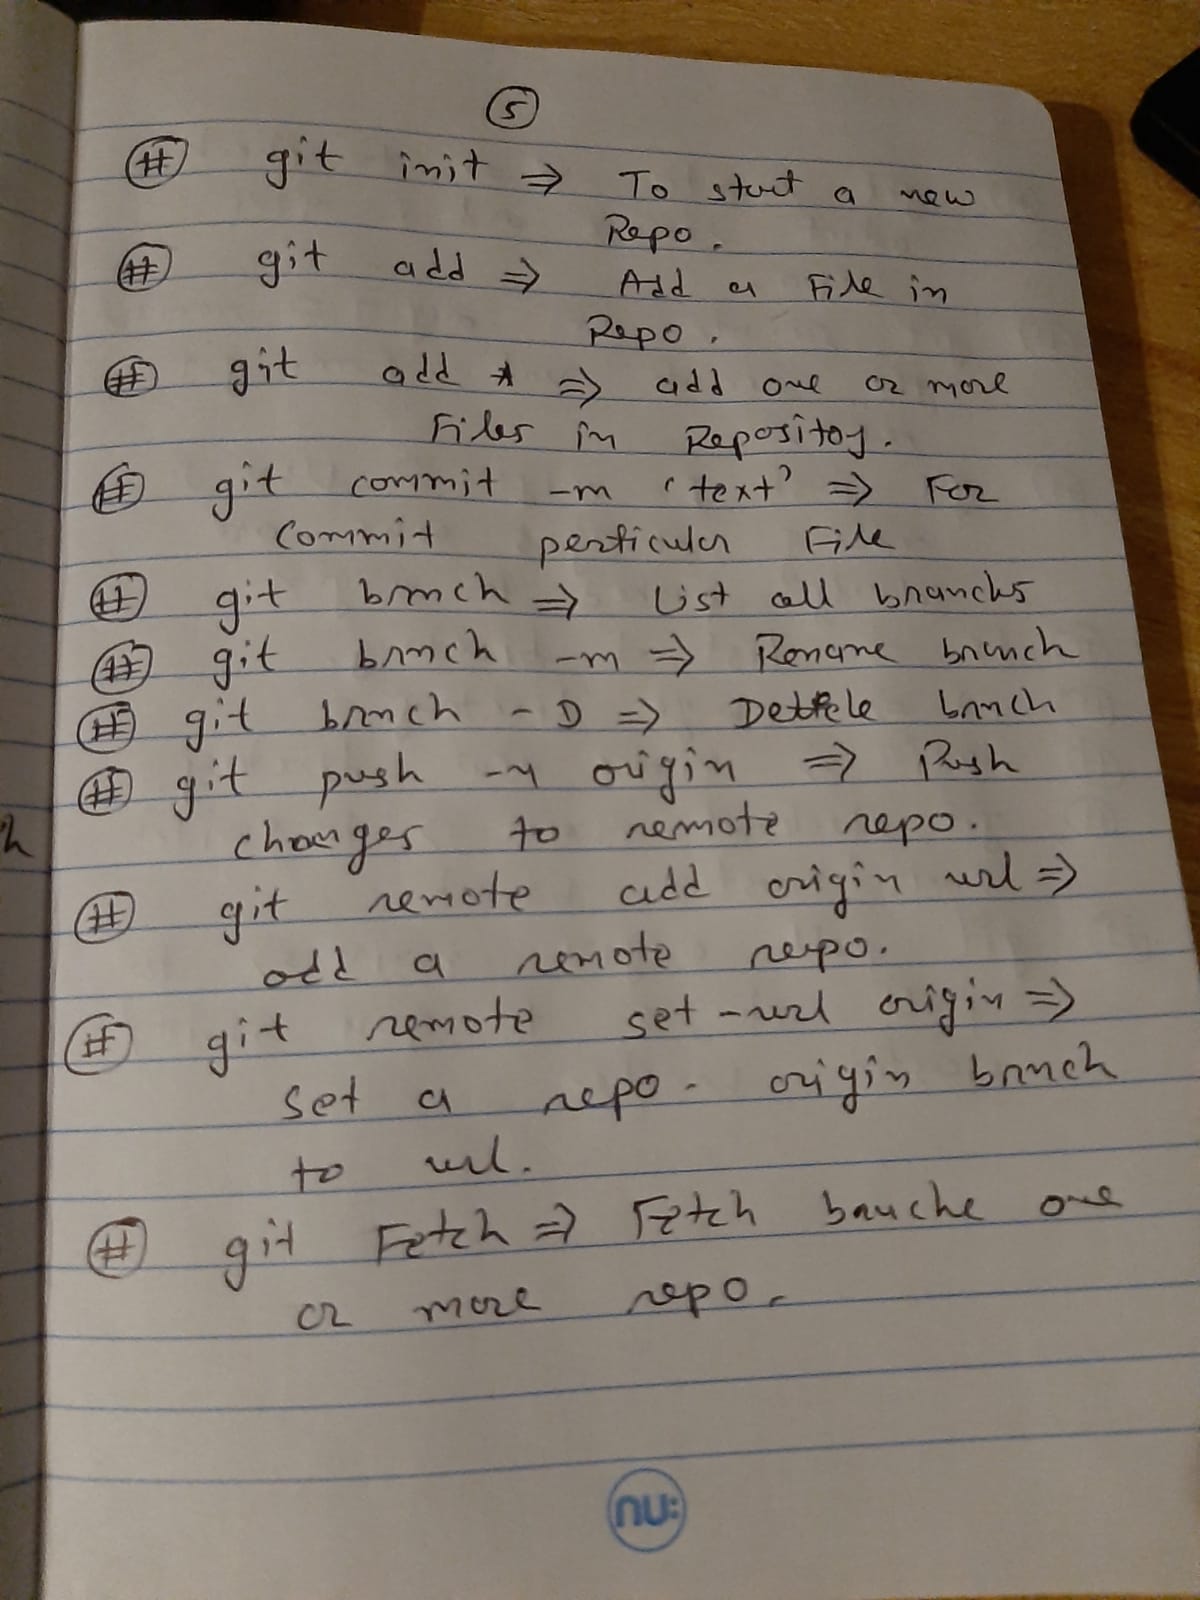 5
# git init ⇒ To start a new
Repo.
# git add ⇒ Add a File in
Repo.
# git add * ⇒ add one or more
Files in Repositoy.
# git commit -m 'text' ⇒ For
Commit perticuler File
# git branch ⇒ List all branchs
# git branch -m ⇒ Rename branch
# git branch - D ⇒ branch
# git push -u origin ⇒ Push
changes to remote repo.
# git remote add origin url ⇒
add a remote repo.
# git remote set -url origin ⇒
set a repo. origin branch
to url.
# git Fetch ⇒ Fetch bauche one
or more repo.
h
nu: